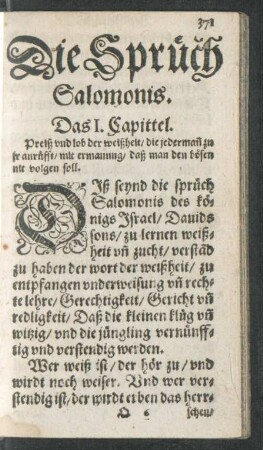 371
Die Sprüch
Salomonis.
Das I. Capittel.
Preiß vnd lob der weißheit/ die jederman̄ zu
jr anrüfft/ mit ermanung/ daß man den bösen
nit volgen soll.
DIß seynd die sprüch
Salomonis des kö-
nigs Israel/ Dauids
sons/ zu lernen weiß-
heit vn̄ zucht/ verstād
zu haben der wort der weißheit/ zu
entpfangen vnderweisung vn̄ rech-
te lehre/ Gerechtigkeit/ Gericht vn̄
redligkeit/ Daß die kleinen klůg vn̄
witzig/ vnd die jüngling vernünff-
tig vnd verstendig werden.
Wer weiß ist/ der hör zu/ vnd
wirdt noch weiser. Vnd wer ver-
stendig ist/ der wirdt erben das herr-
6 schen/